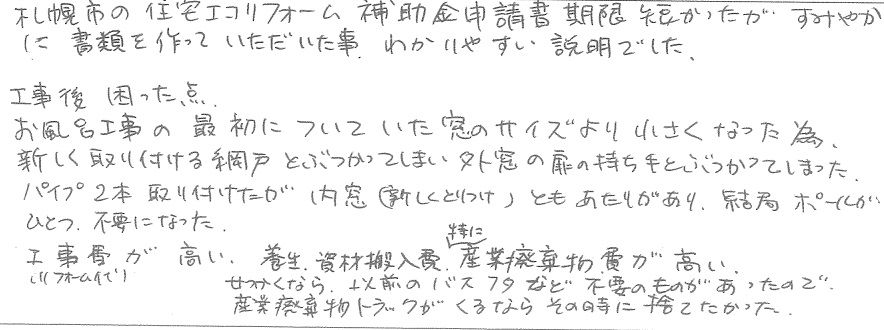 札幌市の住宅エコリフォーム補助金申請書期限短かったが すみやか
に書類を作っていただいた事、わかりやすい説明でした。
工事後 困った点.
お風呂工事の最初についていた窓のサイズより小さくなった為、
新しく取り付ける網戸とぶつかってしまい外窓の扉の持ち手とぶつかってしまった.
パイプ2本取り付けたが 内窓(新しくとりつけ)ともあたりがあり、結局ポールが
ひとつ、不要になった.
工事費が高い、養生、資材搬入費、特に産業廃棄物費が高い.
(リフォーム代)
せっかくなら、以前のバスフタなど不要のものがあったので
産業廃棄物トラックがくるならその時に捨てたかった.